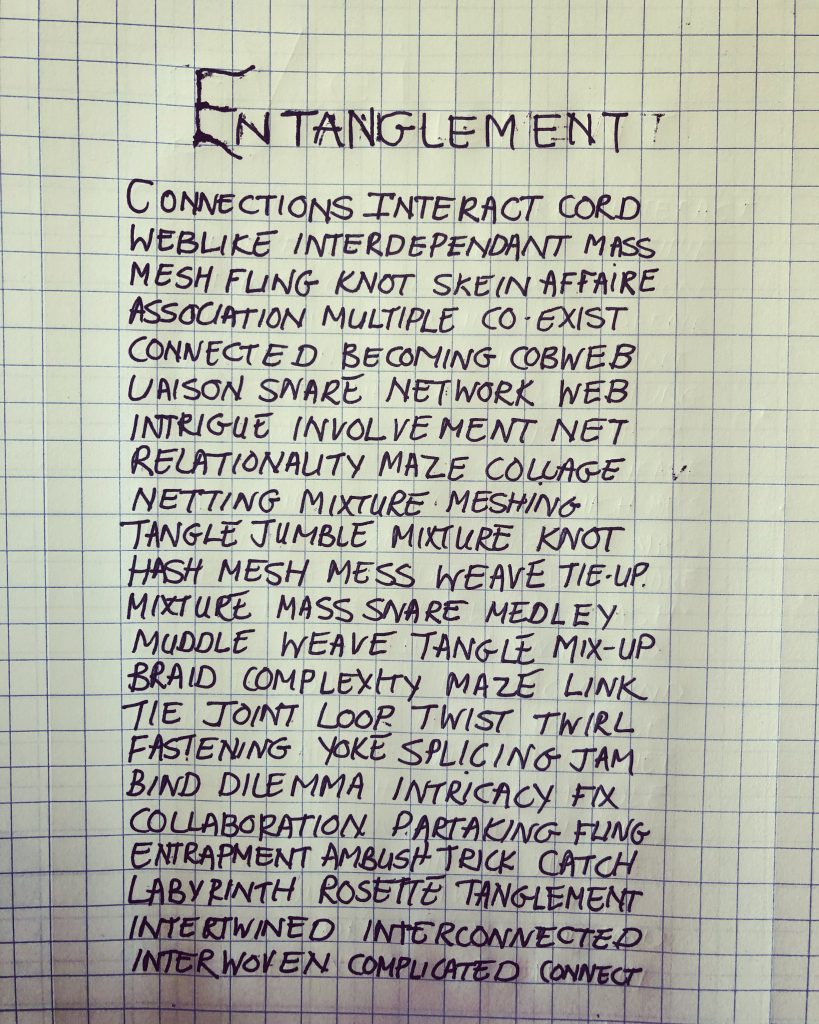 ENTANGLEMENT
CONNECTIONS INTERACT CORD
WEBLIKE INTERDEPENDANT MASS
MESH FLING KNOT SKEIN AFFAIRE
ASSOCIATION MULTIPLE CO-EXIST
CONNECTED BECOMING COBWEB
LIAISON SNARE NETWORK WEB
INTRIGUE INVOLVEMENT NET
RELATIONALITY MAZE COLLAGE
NETTING MIXTURE MESHING
TANGLE JUMBLE MIXTURE KNOT
HASH MESH MESS WEAVE TIE-UP.
MIXTURE MASS SNARE MEDLEY
MUDDLE WEAVE TANGLE MIX-UP
BRAID COMPLEXITY MAZE LINK
TIE JOINT LOOP TWIST TWIRL
FASTENING YOKE SPLICING JAM
BIND DILEMMA INTRICACY FIX
COLLABORATION PARTAKING FLING
ENTRAPMENT AMBUSH TRICK CATCH
LABYRINTH ROSETTE TANGLEMENT
INTERTWINED INTERCONNECTED
INTERWOVEN COMPLICATED CONNECT